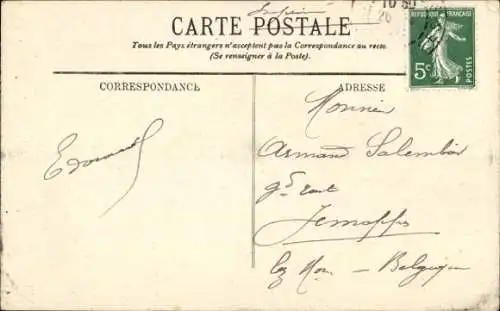 10 50
26
CARTE POSTALE
Tous les Pays étrangers n'acceptent pas la Correspondance au recto.
(Se renseigner à la Poste).
REPUBLIQUE FRANÇAISE
5c
POSTES
CORRESPONDANCE
ADRESSE
Edouard
Armand Salembier
Jemappes
Belgique